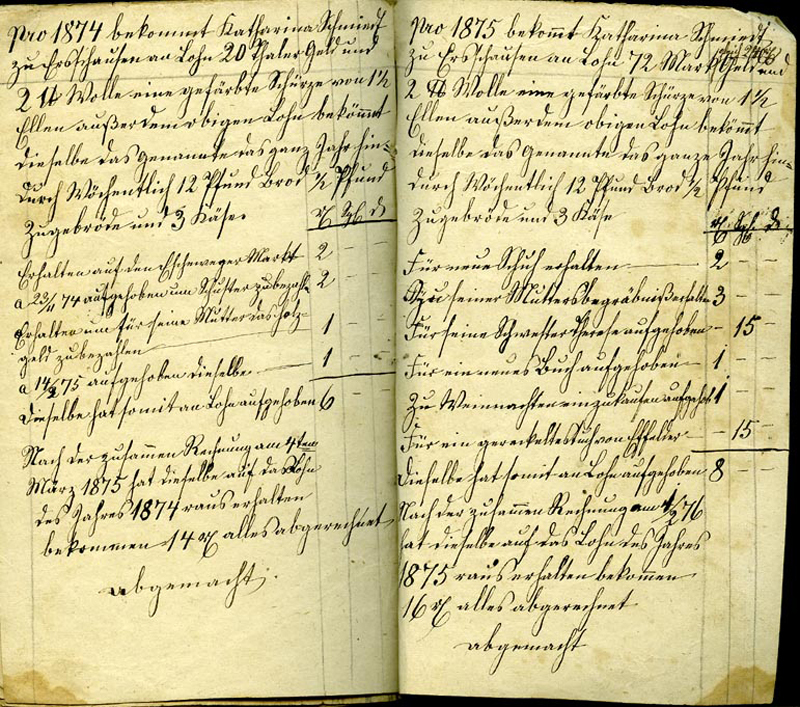 pro 1874 bekommt Katharina Schmiedt
zu Ersthausen an Lohn 20 Thaler Geld und
2 ℔ Wolle eine gefärbte Schürze von 1½
Ellen außerdem obigen Lohn bekömmt
dieselbe das genannte das ganz Jahr hin-
durch Wöchentlich 12 Pfund Brod ½ Pfund
Zugebröde und 3 Käse.
Erhalten auf den Escheweger Markt 2 – –
a 23/11 74 aufgehoben um Schuster zu bezahle 2 – –
Erhalten um für seine Mutter das Holz-
geld zu bezahlen 1 – –
a 14/2 75 aufgehoben dieselbe 1 – –
Dieselbe hat somit an Lohn aufgehoben 6 – –
Nach der zusammen Rechnung am 4ten
März 1875 hat dieselbe auf das Lohn
des Jahres 1874 raus erhalten
bekommen 14 rℓ alles abgerechnet
abgemacht.
pro 1875 bekommt Katharina Schmiedt
zu Ersthausen an Lohn 72 Mark Geld und
2 ℔ Wolle eine gefärbte Schürze von 1½
Ellen außerdem obigen Lohn bekömmt
dieselbe das genannte das ganze Jahr hin-
durch Wöchentlich 12 Pfund Brod ½ Pfund
Zugebröde und 3 Käse
Für neue Schuh erhalten 2 – –
Zu seiner Mutters begräbniß erhalten 3 – –
Für seine Schwester Therese aufgehoben – 15 –
Für ein neues Buch aufgehoben 1 – –
Zu Weinnachten einzukaufen aufgehob 1 – –
Für ein Tuch von Effelder – 15 –
Dieselbe hat somit an Lohn aufgehoben 8 – –
Nach der zusammen Rechnung am 1/2 76
hat dieselbe auf das Lohn des Jahres
1875 raus erhalten bekommen
16 rℓ alles abgerechnet
abgemacht